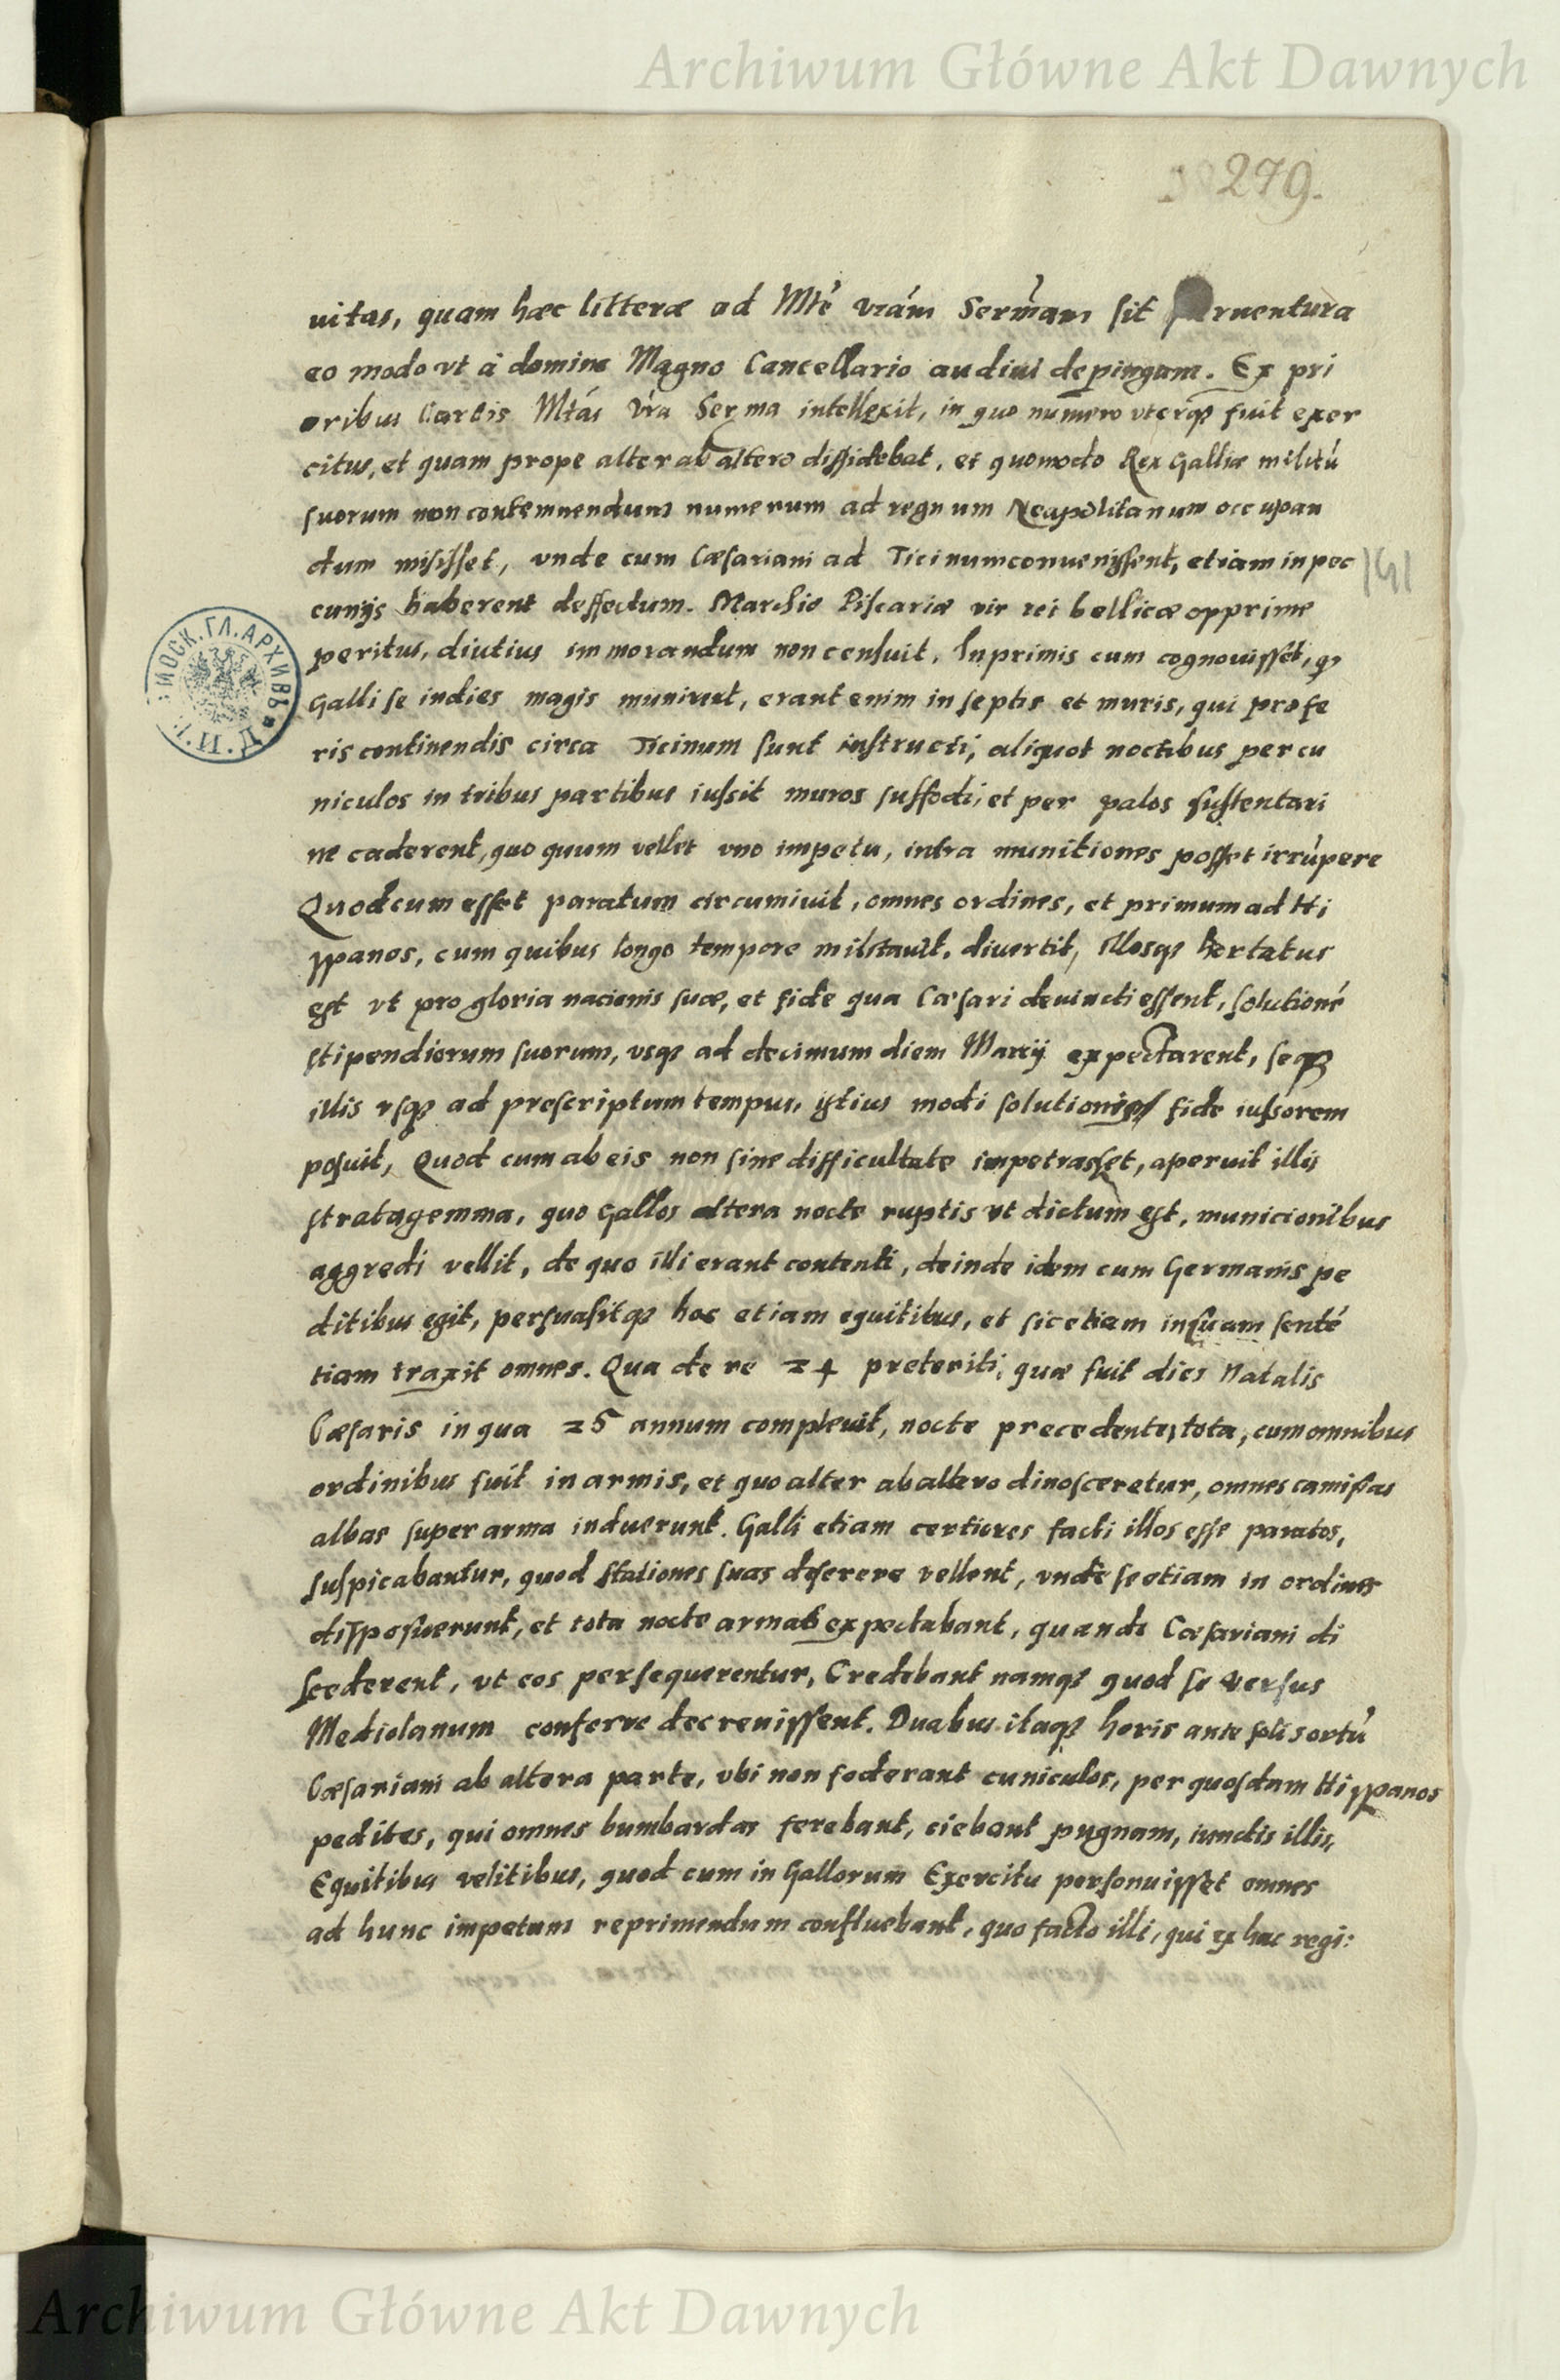 Archiwum Główne Akt Dawnych
279.
uitas, quam hæc litteræ ad Mtẽ vrám Sermam sit peruentura
eo modo vt à domino Magno Cancellario audiui depingam. Ex pri
oribus Cartis Mtás Vra Serma intellexit, in quo numero vterqȝ fuit exer
citus, et quam prope alter ab altero dissidebat, et quomodo Rex Galliæ militú
suorum non contemnendum numerum ad regnum Neapolitanum occupan
dum misisset, vnde cum Cæsariani ad Ticinum conuenissent, etiam in pec
cunijs haberent deffectum. Marchio Piscariæ vir rei bellicæ opprime
peritus, diutius immorandum non censuit. Inprimis cum cognouisset, qȝ
Galli se indies magis munirent, erant enim in septis et muris, qui profe
ris continendis circa Ticinum sunt instructi, aliquot noctibus per cu
niculos in tribus partibus iussit muros suffodi, et per palos sustentari
ne caderent, quo quum vellet vno impetu, intra munitiones posset irrúpere
Quod cum esset paratum circumiuit, omnes ordines, et primum ad Hi
spanos, cum quibus longo tempore militauit, diuertit, illosqȝ hortatus
est vt pro gloria nacionis suæ, et fide qua Cæsari deuincti essent, solutioné
stipendiorum suorum, vsqȝ ad decimum diem Martij expectarent, seqȝ
illis vsqȝ ad prescriptum tempus, istius modi solutionis fide iussorem
posuit, Quod cum ab eis non sine difficultate impetrasset, aperuit illis
stratagemma, quo Gallos altera nocte ruptis vt dictum est, municionibus
aggredi vellit, de quo illi erant contenti, deinde idem cum Germanis pe
ditibus egit, persuasitqȝ hoc etiam equitibus, et sic etiam in suam senté
tiam traxit omnes. Qua de re 24 preteriti, quæ fuit dies Natalis
Cæsaris in qua 25 annum compleuit, nocte precedente tota, cum omnibus
ordinibus fuit in armis, et quo alter ab altero dinosceretur, omnes camisas
albas super arma induerunt. Galli etiam certiores facti illos esse paratos,
suspicabantur, quod stationes suas deserere vellent, vnde se etiam in ordines
disposuerunt, et tota nocte armati expectabant, quando Cæsariani di
scederent, vt eos persequerentur, Credebant namqȝ quod se versus
Mediolanum conferre decreuissent. Duabus itaqȝ horis ante solis ortú
Cæsariani ab altera parte, vbi non foderant cuniculos, per quosdam Hispanos
pedites, qui omnes bumbardas ferebant, ciebant pugnam, iunctis illis,
Equitibus velitibus, quod cum in Gallorum Exercitu personuisset omnes
ad hunc impetum reprimendum confluebant, quo facto illi, qui ex hac regi:
Archiwum Główne Akt Dawnych